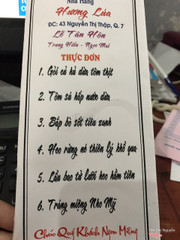 Nhà Hàng
Hương Lúa
ĐC: 43 Nguyễn Thị Thập, Q. 7
Lễ Tân Hôn
Trung Hiếu - Ngọc Mai
THỰC ĐƠN
1. Gỏi củ hủ dừa tôm thịt
2. Tôm sú hấp nước dừa
3. Bắp bò sốt tiêu xanh
4. Heo rừng né thiên lý khổ qua
5. Lẩu bao tử lưỡi heo hầm tiềm
6. Tráng miệng Nho Mỹ
Chúc Quý Khách Ngon Miệng